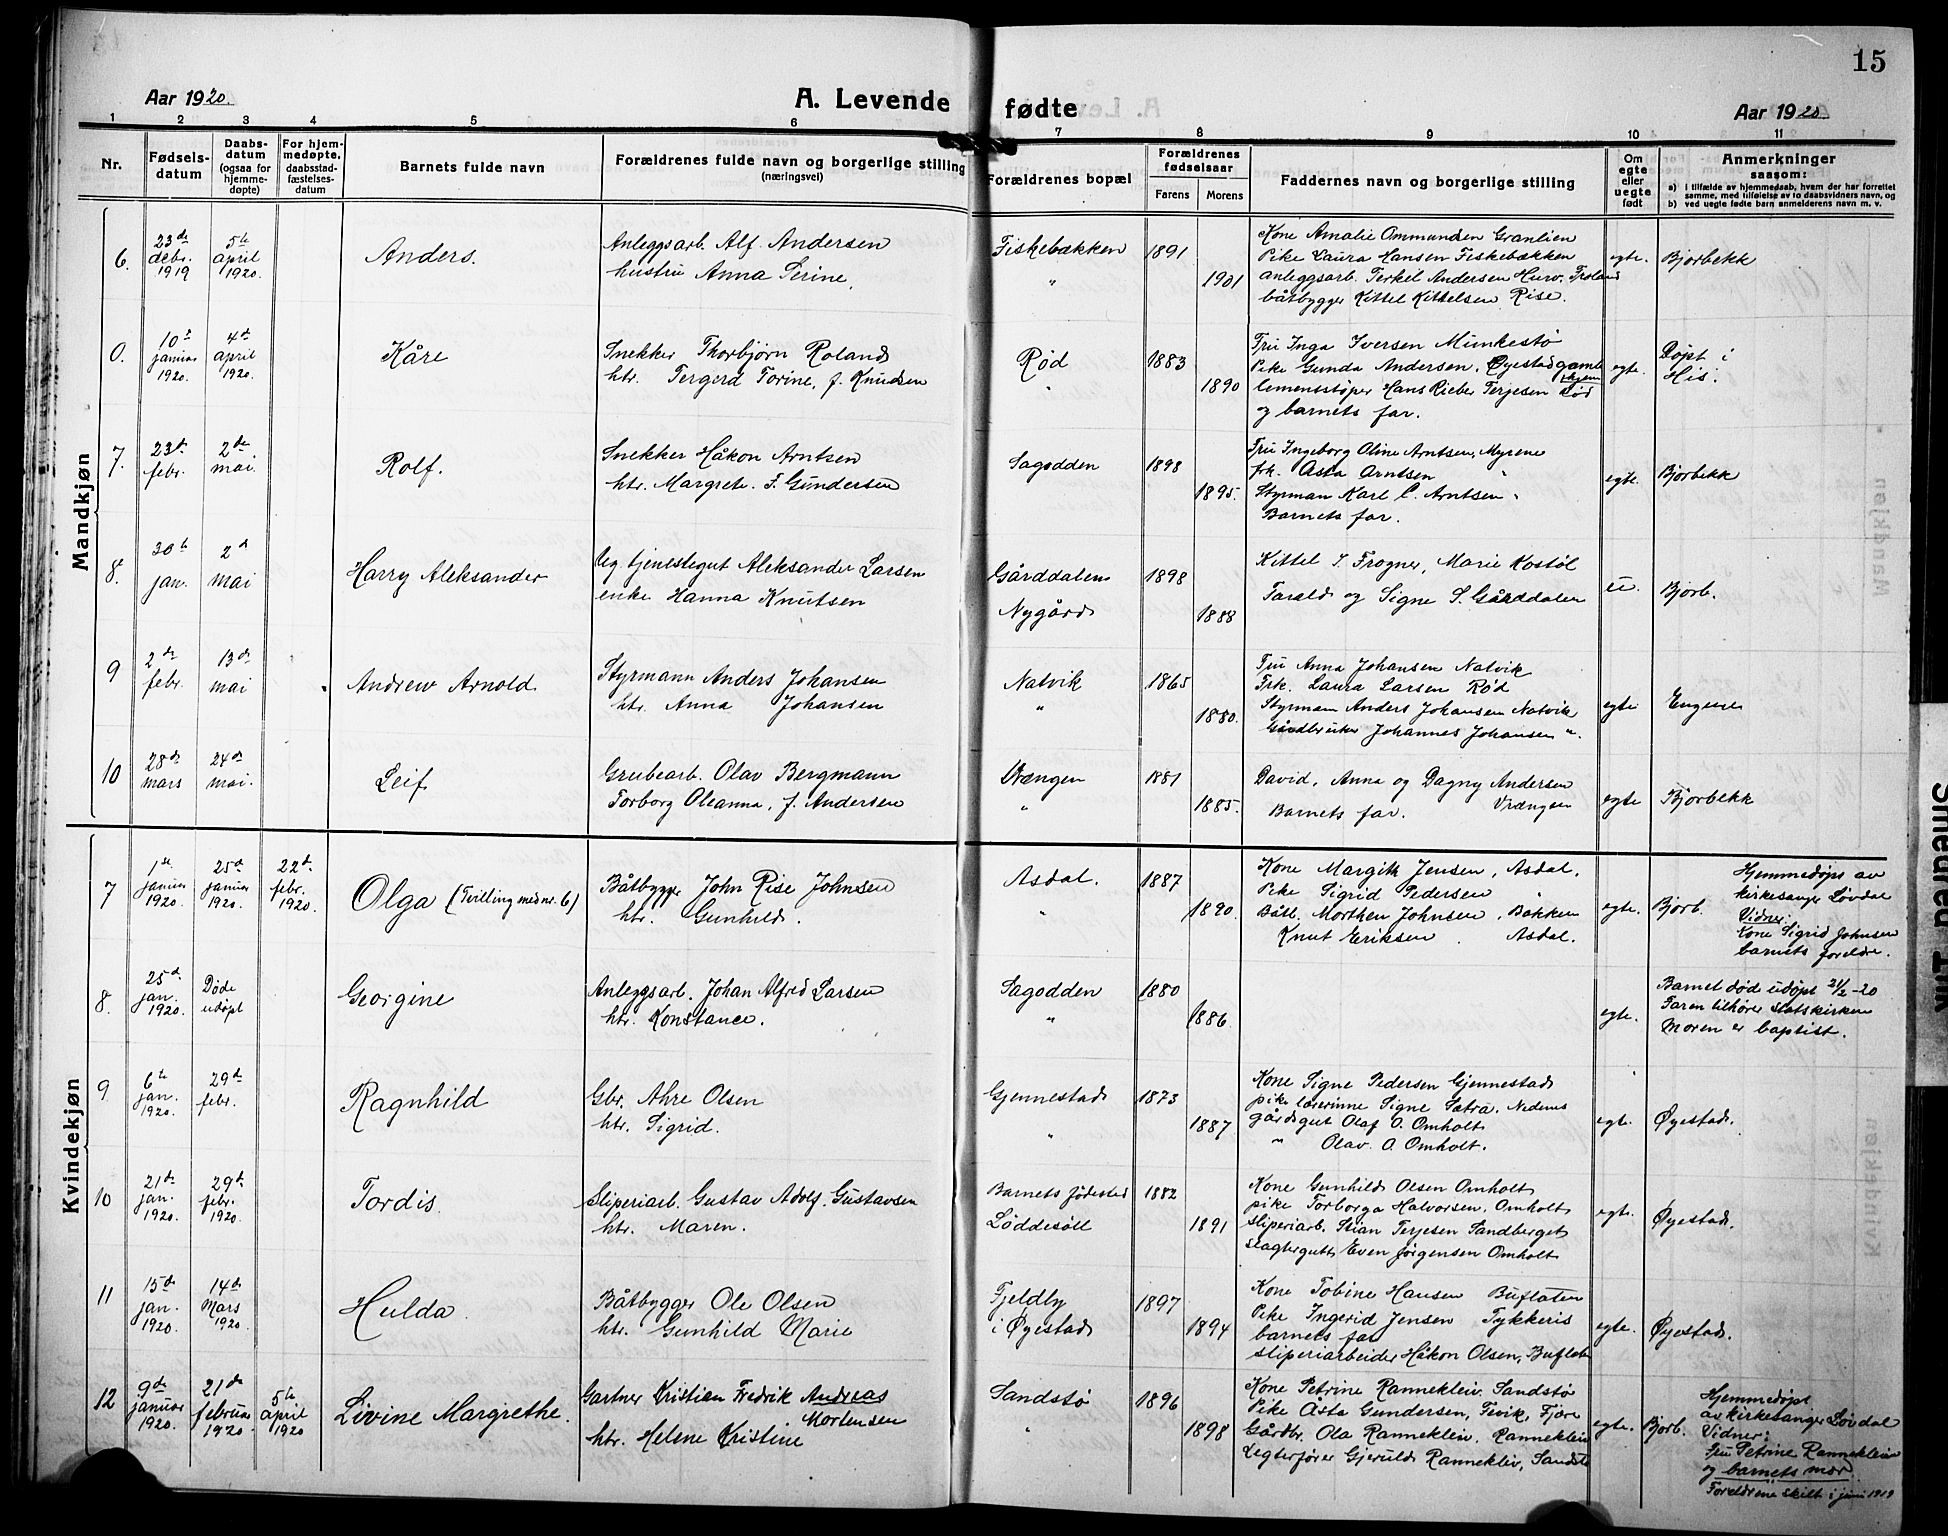 15
Aar 1920. A. Levende fødte Aar 1920.
1 2 3 4 5 6 7 8 9 10 11
Nr. Fødsels-datum Daabs-datum (ogsaa for hjemme-døpte) For hjem-medøpte, daabsstad-fæstelses-datum Barnets fulde navn Forældrenes fulde navn og borgerlige stilling (næringsvei) Forældrenes bopæl Forældrenes fødselsaar Farens Morens Faddernes navn og borgerlige stilling Om egte eller uegte født Anmerkninger saasom:
a) i tilfælde av hjemmedaab, hvem der har forrettet samme, med tilføielse av to daabsvidners navn, og
b) ved uegte fødte barn anmelderens navn m. v.
Mandkjøn
6. 23de debr. 1919 5te april 1920. Anders. Anleggsarb. Alf. Andersen Fiskebækken 1891 Kone Amalie Ommundsen Granlien egte. Bjorbekk
hustru Anna Terine. " 1901 Pike Laura Hansen Fiskebækken
anleggsarb. Terkel Andersen Hurv. Froland
båtbygger Kittel Kittelsen Rise.
0. 10 januar 1920. 4de april 1920. Kåre Snekker Thorbjørn Roland Rød 1883 Fru Inga Iversen Munkestø egte. Døpt i His.
htr. Tergerd Torine, f. Knudsen " 1890 Pike Gunda Andersen, Øyestad gamlehjem
sementstøper Hans Rieber Terjesen Rød
og barnets far.
7. 23de febr. 2de mai. Rolf. Snekker Håkon Arntsen Sagodden 1898 Fru Ingeborg Oline Arntsen, Myrene egte. Bjorbekk
htr. Margrete. f. Gundersen 1895. frk. Asta Arntsen "
Styrman Karl C. Arntsen "
Barnets far.
8. 30te jan. 2d mai Harry Aleksander Ug. tjenestegut Aleksander Larsen Gårddalen 1898 Kittel J. Frogner, Marie Kostøl u. Bjorb.
enke Hanna Knutsen Nygård 1888 Tarald og Signe S. Gårddalen
9 2de febr. 13de mai Andrew Arnold Styrmann Anders Johansen Natvik 1865 Fru Anna Johansen Natvik egte Engene
htr. Anna Johansen " 1880. Frk. Laura Larsen Rød
Styrman Anders Johansen Natvik
Gårdbruker Johannes Johansen ".
10 28de mars 24de mai. Leif Grubearb. Olav Bergmann Vrængen 1881 David, Anna og Dagny Andersen egte Bjorbekk
Torborg Oleanna, f. Andersen " 1885. Barnets far. Vrængen
Kvindekjøn
7 1ste januar 1920. 25d januar 1920. 22d febr. 1920. Olga (Tvilling med nr. 6) Båtbygg. John Rise Johnsen Asdal. 1887 Kone Margith Jensen, Asdal. egte. Bjorb. Hjemmedøpt av
htr. Gunhild. " 1890. Pike Sigrid Pedersen " kirkesanger Løvdal
Båtb. Morthen Johnsen, Bakken Vidner:
Knut Eriksen. Asdal. Kone Sigrid Johnsen
barnets foreldre.
8. 25d jan. 1920. Døde udøpt Georgine Anleggsarb. Johan Alfred Larsen Sagodden 1880 egte. Barnet død udøpt 21/2-20
htr. Konstance. " 1886. Faren tilhører statskirken
Moren er baptist.
9 6te jan. 1920. 29d febr. Ragnhild Gbr. Ahre Olsen Gjennestad 1873 Kone Signe Pedersen Gjennestad egte. Øyestad.
htr. Sigrid. " 1887. pike lærerinne Signe Sætra, Nedenes
gårdsgut Olaf O. Omholt
" Olav. O. Omholt.
10 21de jan. 1920. 29de febr. 1920. Tordis. Sliperiarb. Gustav Adolf Gustavsen Barnets fødested 1882 Kone Gunhild Olsen Omholt egte. Øyestad.
htr. Maren. Løddesøll 1891 pike Torborga Halvorsen, Omholt
sliperiarb. Stian Terjesen Sandberget
slagtergutt Even Jørgensen Omholt
11 15de jan. 1920. 14de Mars 1920. Hulda. Båtbygger Ole Olsen Fjeldby 1897 Kone Tobine Hansen Buflaten egte. Øyestad.
htr. Gunhild Marie i Øyestad 1894 Pike Ingerid Jensen Tykkeris
barnets far
sliperiarbeider Håkon Olsen, Buflaten
12 9de januar 1920. 21de februar 1920 5te april 1920 Livine Margrethe. Gartner Kristian Fredrik Andreas Sandstø 1896 Kone Petrine Rannekleiv. Sandstø egte. Bjorb. Hjemmedøpt
Mortensen Pike Asta Gundersen, Fevik, Fjære av kirkesanger Løvdal
htr. Helene Kristine " 1898 Gårdbr. Ola Rannekleiv, Rannekleiv Vidner:
Legterfører Gjeruld Rannekleiv, Sandstø fru Petrine Rannekleiv
og barnets mor.
Foreldrene skilt i juni 1919
Smedied Ink